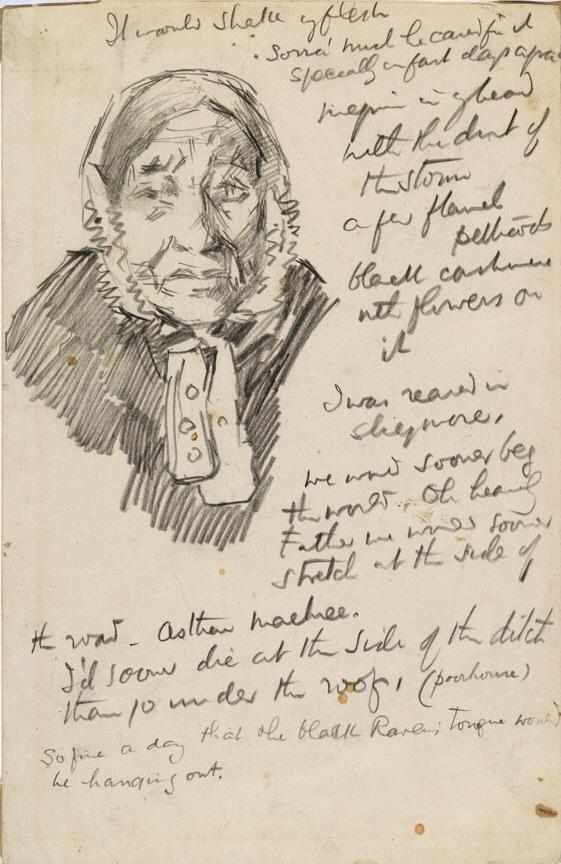 It would shake y flesh
Some must be careful it
specially on fast days
in y head
with the dint of
the storm
a few flannel
petticoats
black cashmere
with flowers on
it
I was reared in
we would sooner beg
the world. Oh heavenly
Father we would sooner
stretch at the side of
the road - Asthen machree.
I'd sooner die at the side of the ditch
than go under the roof, (poorhouse)
So fine a day that the black Ravens tongue would
be hanging out.